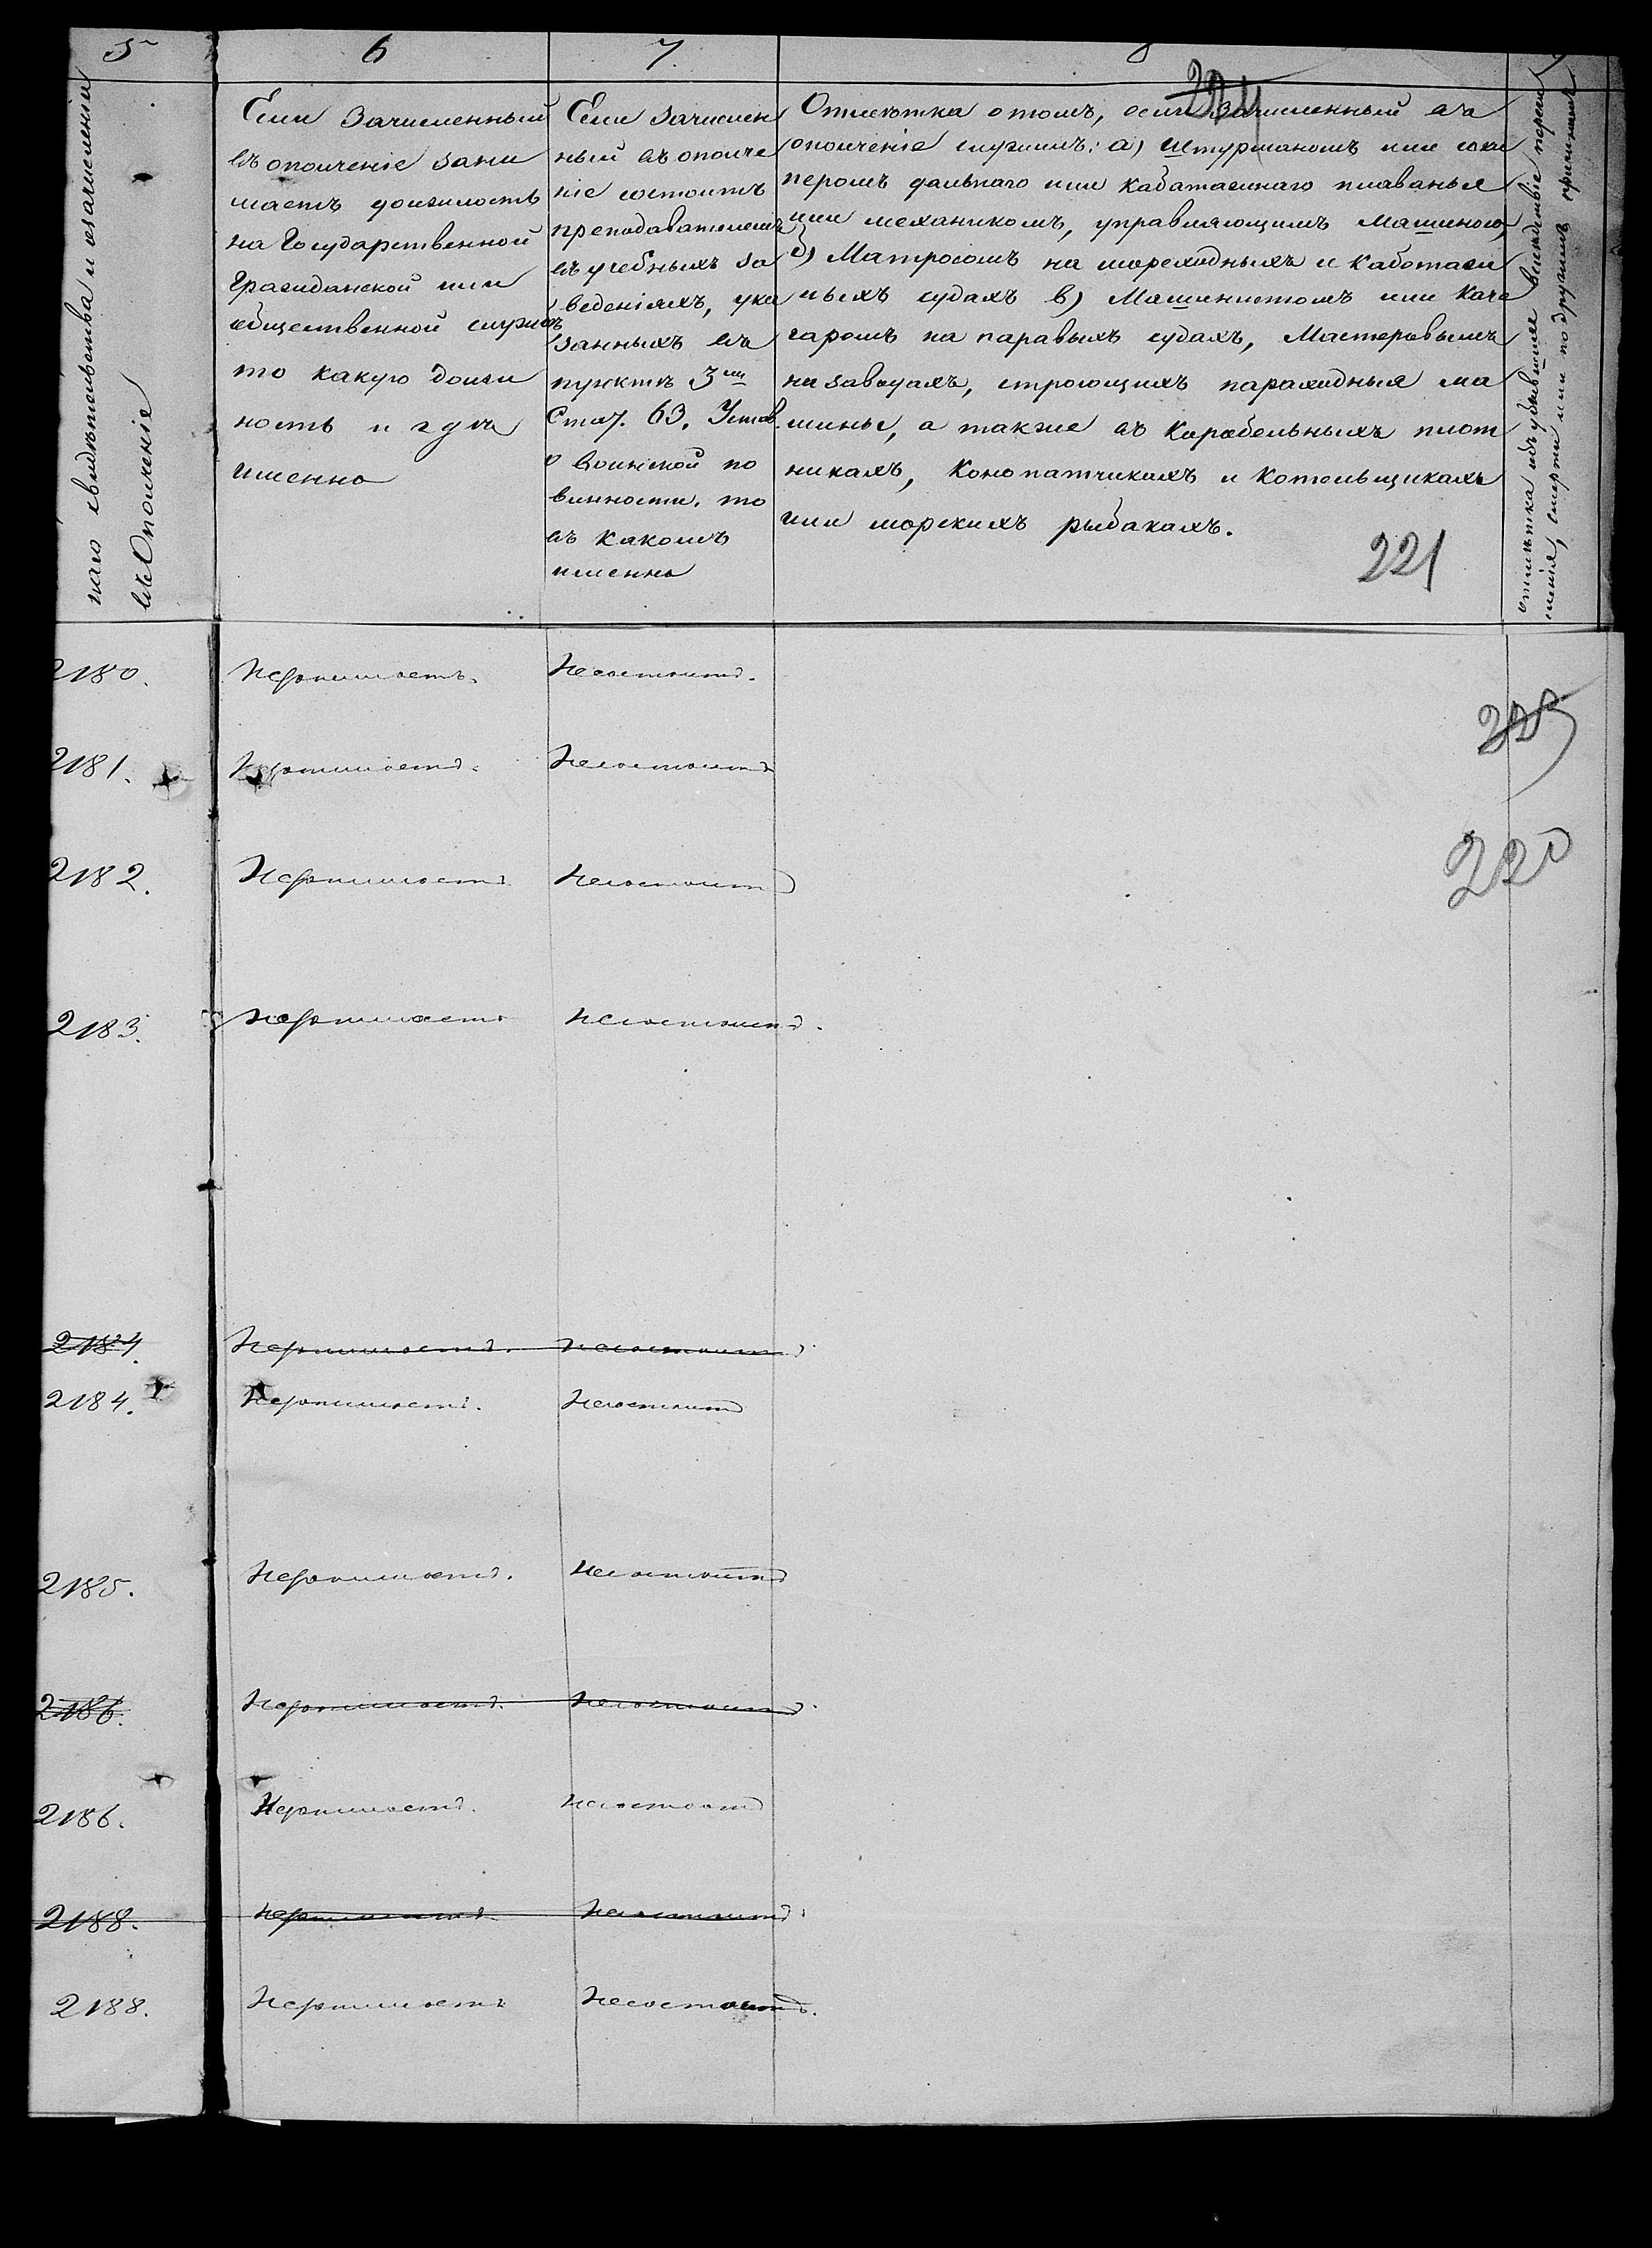 5
6
7.
8
наго свидѣтельства о зачисленіи
въ Ополченіе
Если Зачисленный
въ ополченіе зани
маетъ должность
на Государственной
Гражданской или
общественной службѣ
то какую долж
ность и гдѣ
именно
Если зачислен
ный въ ополче
ніе состоитъ
преподавателемъ
въ учебныхъ за
веденіяхъ, ука
занныхъ въ
пунктѣ 3мъ
Стат. 63. Устав.
о воинской по
винности. то
въ какомъ
именно
Отмѣтка о томъ, если Зачисленный въ
ополченіе служитъ: а) Штурманомъ или шки
перомъ дальнаго или Кабатажнаго плаванья
или механикомъ, управляющимъ машиною,
б) Матросомъ на мореходныхъ и каботаж
ныхъ судахъ в) Машинистомъ или Коче
гаромъ на паравыхъ судахъ, Мастеровымъ
на заводахъ, строющихъ пароходныя ма
шины, а также въ Карабельныхъ плот
никахъ, Конопатчикахъ и Котельщикахъ
или морскихъ рыбакахъ.
221
отмѣтка объ убывшихъ вслѣдствіе перечи
сленія, смерти или по другимъ причинамъ
2180. Незанимаетъ. Несостоитъ.
2181. Незанимаетъ. Несостоитъ
220
2182. Незанимаетъ. Несостоитъ
2183. Незанимаетъ Несостоитъ.
2184. Незанимаетъ. Несостоитъ
2184. Незанимаетъ. Несостоитъ
2185. Незанимаетъ. Несостоитъ
2186. Незанимаетъ. Несостоитъ
2186. Незанимаетъ. Несостоитъ
2188. Незанимаетъ. Несостоитъ
2188. Незанимаетъ Несостоитъ.